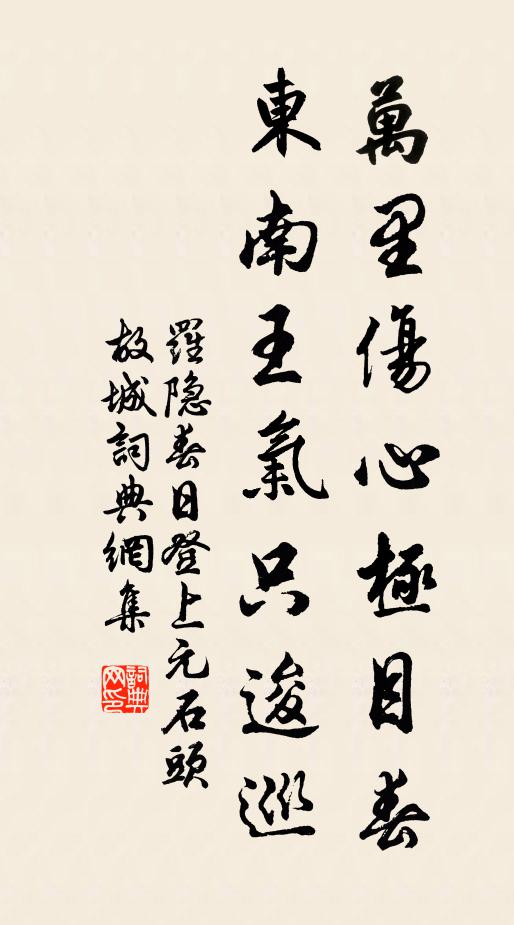 萬里傷心極目春
東南王氣只逡巡
羅隱春日登上元石頭
故城詞典網集
詞典
网印